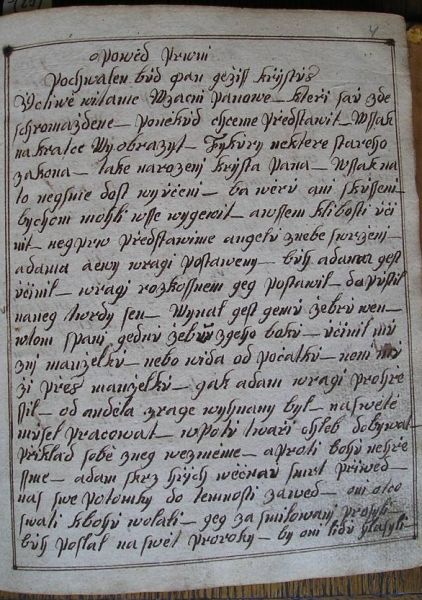 4
Powěd Prwni
Pochwalen bůd pan gežiss krystus
Wzactni Panowe kteri sau zde
schromaždene Ponekud chceme Předstawit Wssak
na kratce Wyobrazyt Fykury nektere stareho
zakona take narozeni krysta Pana Wssak na
to negsme dost wyučeni ba wěru ani skussen
bychom mohli wsse wygewit awssem klibosti uči
nit negprw Předstawime angelu znebe swrženi
adama aewy wragi Postaweny bůh adama gest
učinil wragi rozkossnem geg postawil dopustil
naneg twrdy sen Wynal gest gemu žebru wen
wtom spani gednu žebru zgeho boku učinil mu
z nj manželku nebo wida od Počatku není mu
ži Prěs manželky gak adam wragi Prohre
ssil od anděla zrage wyhnany byl naswětě
musel Pracowat wpotu twaři chleb dobywal
Přiklad sobě zneg wezměme a proti bohu nehře
ssme adam skrz hřych wěčnau smrt Přiwed
nas swe Potomky do temnosti zawed oni otco
wali kbohu wolali geg za smilowani Prosyli
bůh Poslal naswět Proroky by oni lidu hlasyli